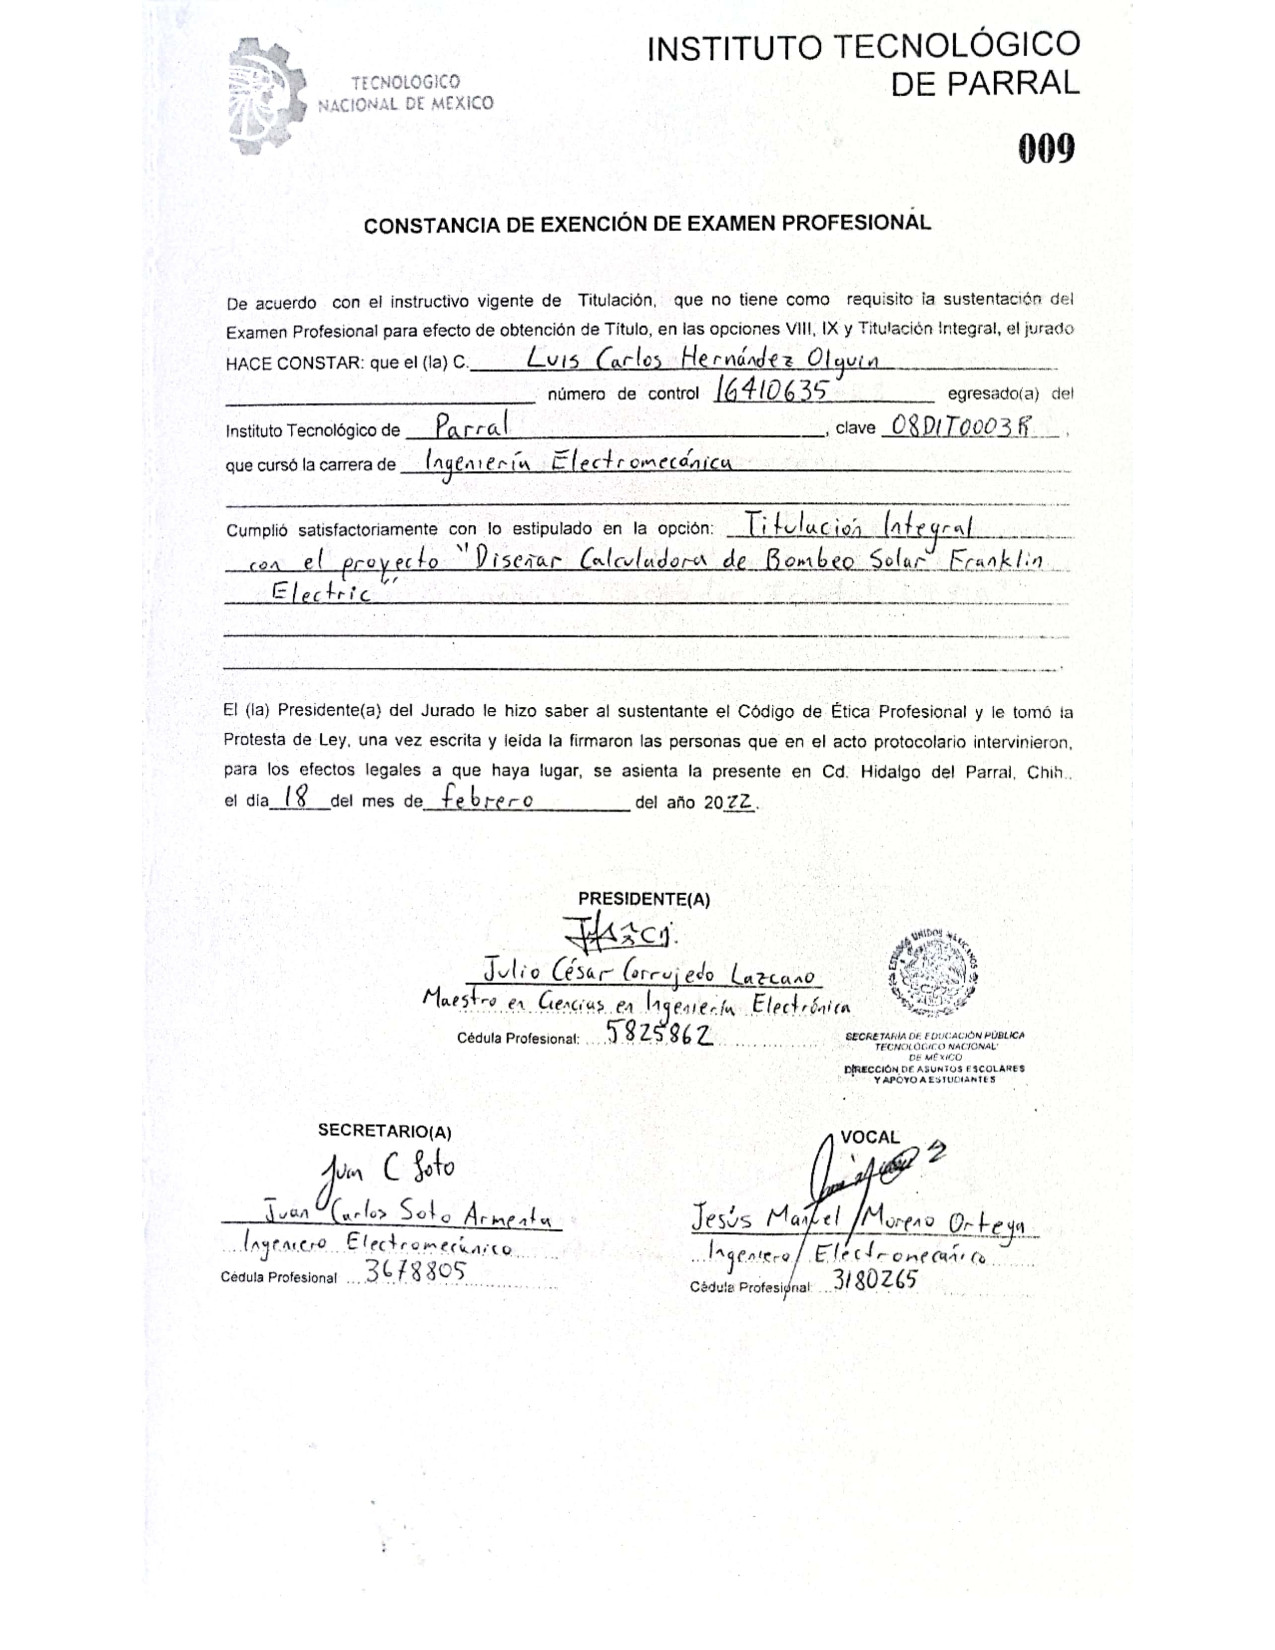 INSTITUTO TECNOLÓGICO
DE PARRAL
TECNOLOGICO
NACIONAL DE MEXICO
009
CONSTANCIA DE EXENCIÓN DE EXAMEN PROFESIONAL
De acuerdo con el instructivo vigente de Titulación, que no tiene como requisito la sustentación del
Examen Profesional para efecto de obtención de Título, en las opciones VIII, IX y Titulación Integral, el jurado
HACE CONSTAR: que el (la) C. Luis Carlos Hernández Olguin
número de control 16410635 egresado(a) del
Instituto Tecnológico de Parral, clave 08DIT0003R,
que cursó la carrera de Ingeniería Electromecánica
Cumplió satisfactoriamente con lo estipulado en la opción: Titulación Integral
con el proyecto "Diseñar Calculadora de Bombeo Solar Franklin
Electric"
El (la) Presidente(a) del Jurado le hizo saber al sustentante el Código de Ética Profesional y le tomó la
Protesta de Ley, una vez escrita y leída la firmaron las personas que en el acto protocolario intervinieron,
para los efectos legales a que haya lugar, se asienta la presente en Cd. Hidalgo del Parral, Chih.,
el día 18 del mes de febrero del año 2022.
PRESIDENTE(A)
Julio César Corrujedo Lazcano
Maestro en Ciencias en Ingeniería Electrónica
Cédula Profesional: 5825862
ESTADOS UNIDOS MEXICANOS
SECRETARÍA DE EDUCACIÓN PÚBLICA
TECNOLÓGICO NACIONAL
DE MÉXICO
DIRECCIÓN DE ASUNTOS ESCOLARES
Y APOYO A ESTUDIANTES
SECRETARIO(A)
Juan C Soto
Juan Carlos Soto Armenta
Ingeniero Electromecánico
Cédula Profesional 3678805
VOCAL
Jesús Manuel Moreno Ortega
Ingeniero Electromecánico
Cédula Profesional: 3180265